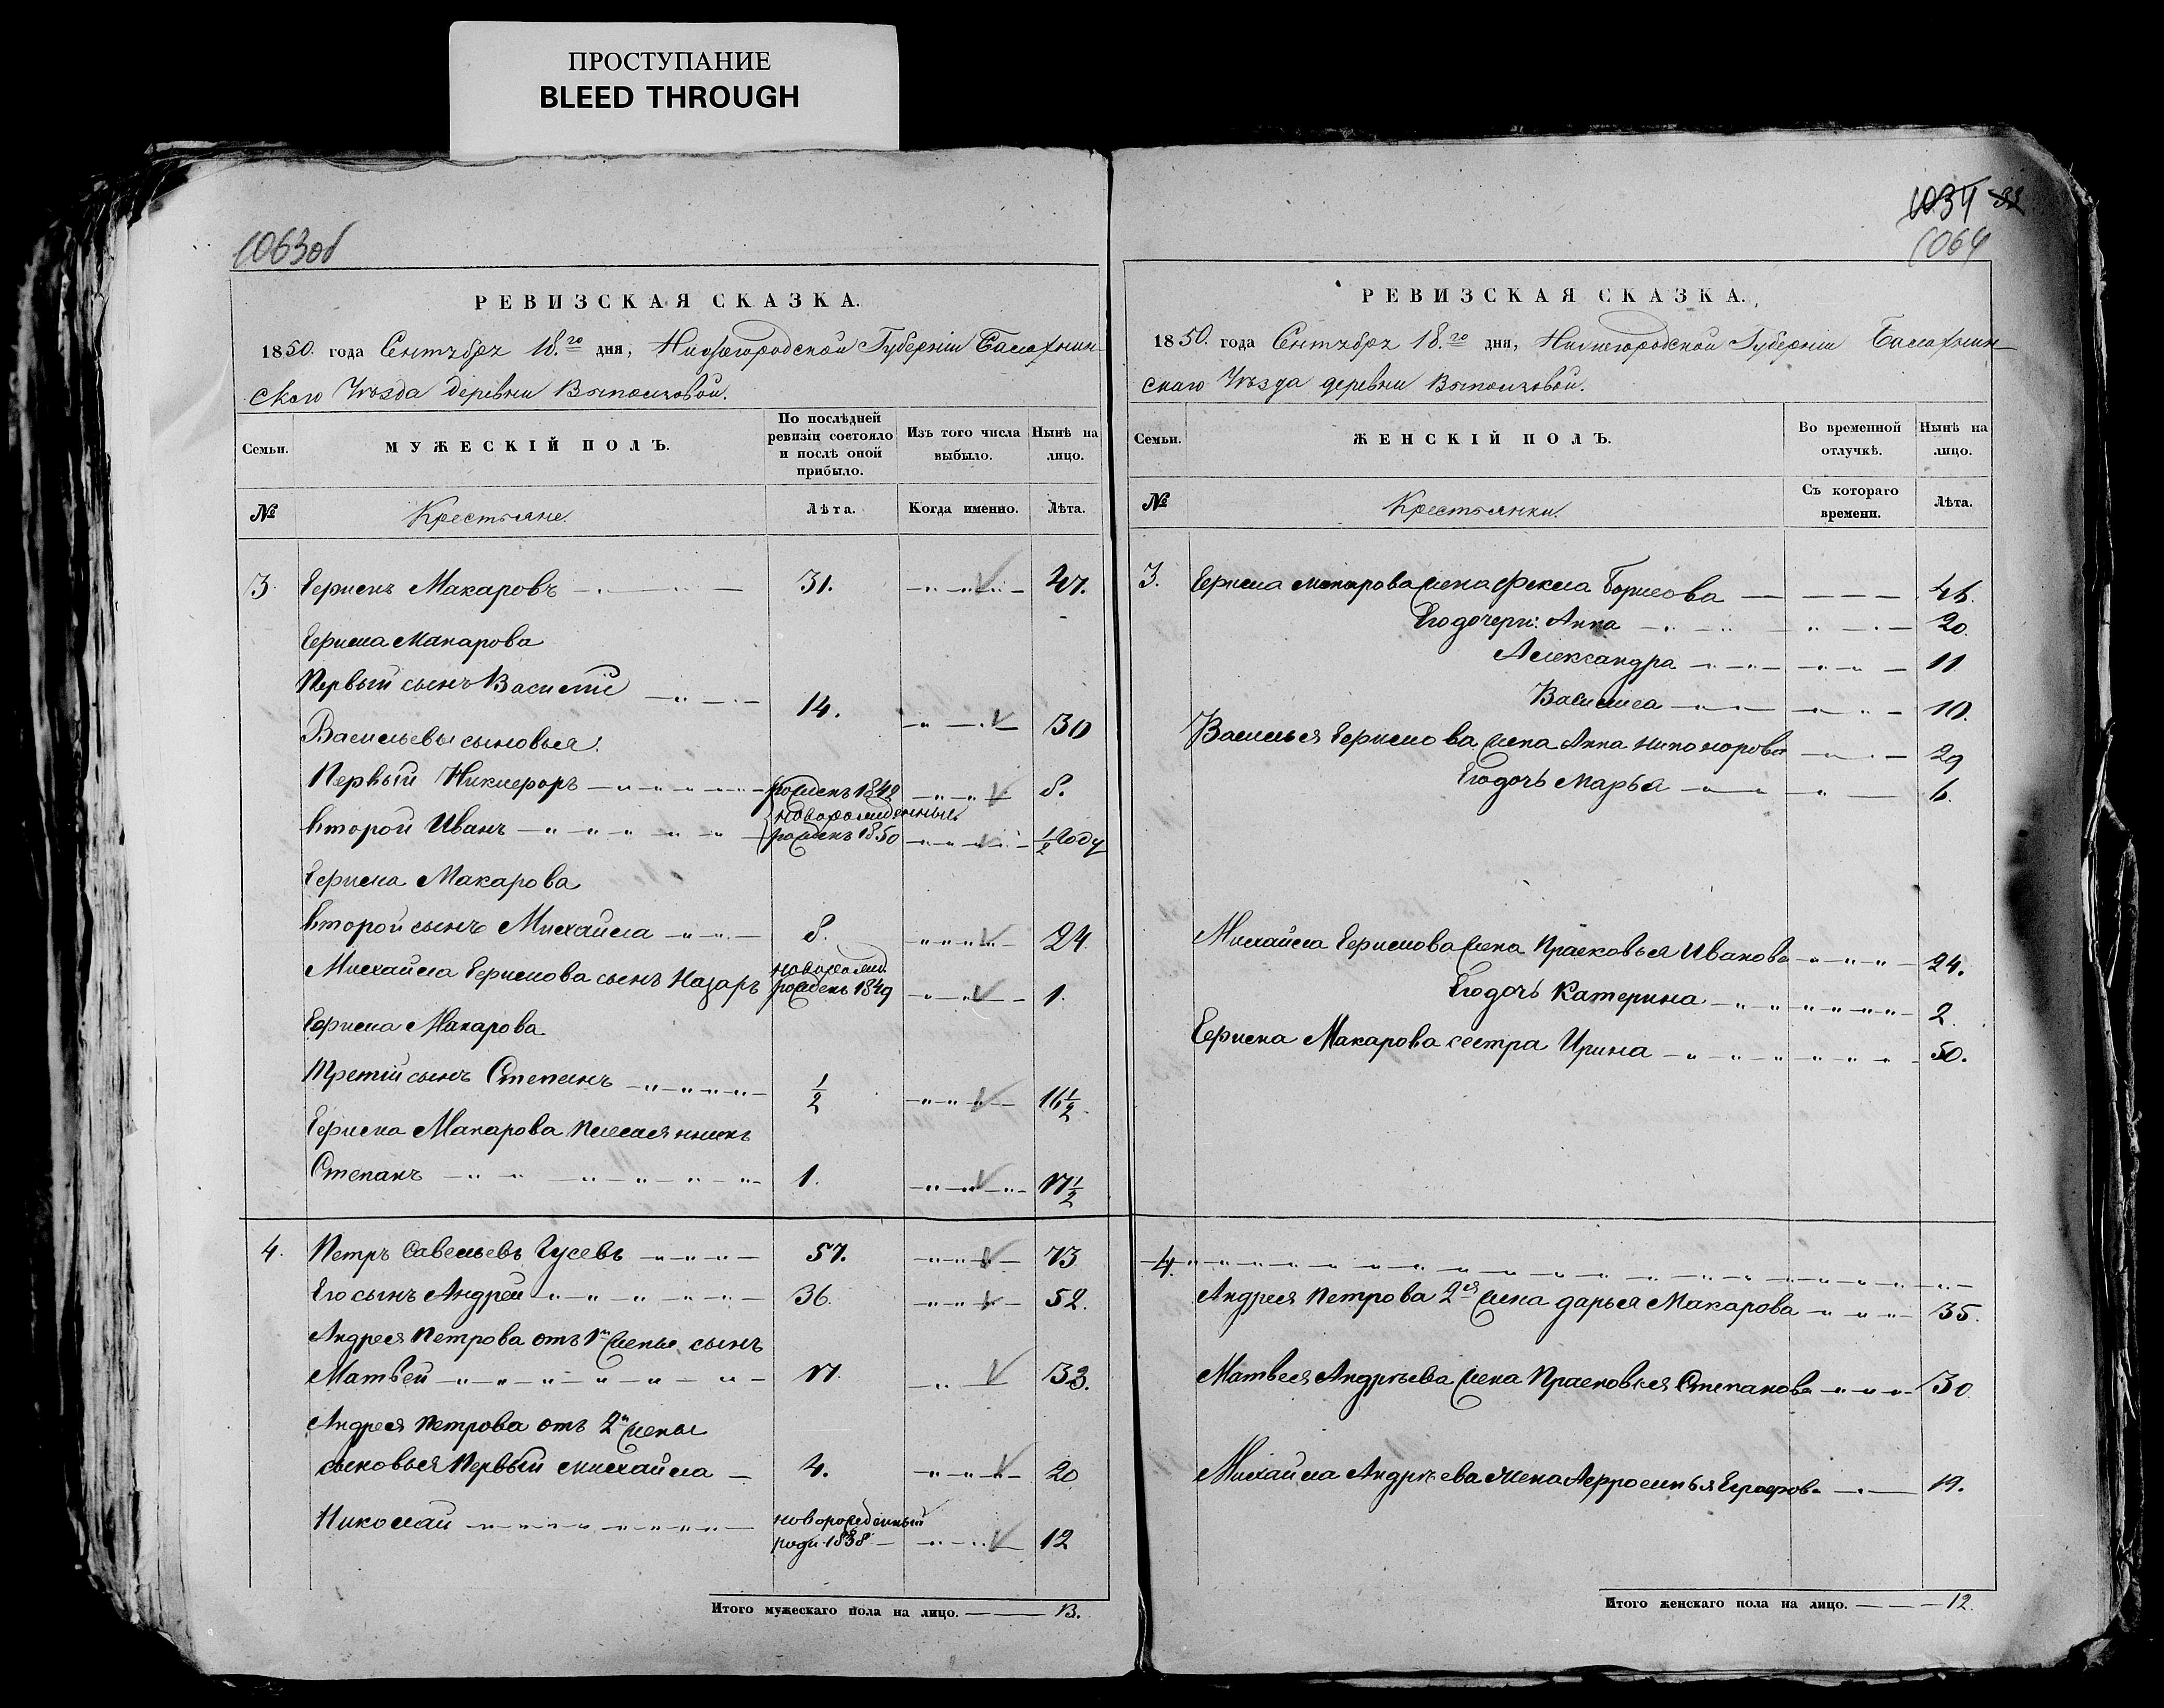 ПРОСТУПАНИЕ
BLEED THROUGH
1063об
РЕВИЗСКАЯ СКАЗКА.
1850. года Сентября 18.го дня, Нижегородской Губернiи Балахнин-
скаго Уѣзда деревни
Семьи.
МУЖЕСКІЙ ПОЛЪ.
По послѣдней ревизіи состояло и послѣ оной прибыло.
Изъ того числа выбыло.
Нынѣ на лицо.
№
Крестьяне.
Лѣта.
Когда именно.
Лѣта.
3. Ермилъ Макаровъ 31. 47.
Ермила Макарова
Первый сынъ Василій 14. 30
Васильевы сыновья.
Первый Никифоръ рожденъ 1842 8.
новорожденные
второй Иванъ рожденъ 1850 1/2 году
Ермила Макарова
второй сынъ Михайла 8. 24
Михайла Ермилова сынъ Назаръ новорожд. рожденъ 1849 1.
Ермила Макарова
Третій сынъ Степанъ 1/2 16 1/2
Ермила Макарова племянникъ
Степанъ 1. 17 1/2
4. Петръ Савельевъ Гусевъ 57. 73
Его сынъ Андрей 36. 52.
Андрея Петрова отъ 1й жены сынъ
Матвей 17. 33.
Андрея Петрова отъ 2й жены
сыновья Первый Михайла 4. 20
Николай новорожденный роди. 1838 12
Итого мужескаго пола на лицо. 13.
1034 32
1064
РЕВИЗСКАЯ СКАЗКА.
1850. года Сентября 18.го дня, Нижегородской Губерніи Балахнин-
скаго Уѣзда деревни
Семьи.
ЖЕНСКІЙ ПОЛЪ.
Во временной отлучкѣ.
Нынѣ на лицо.
№
Крестьянки.
Съ котораго времени.
Лѣта.
3. Ермила Макарова жена Фекла Борисова 46.
Его дочери: Анна 20.
Александра 11
Василиса 10.
Василья Ермилова жена Анна Никонорова 29
Его дочь Марья 6.
Михайла Ермилова жена Прасковья Иванова 24.
Его дочь Катерина 2.
Ермила Макарова сестра Ирина 50.
4.
Андрея Петрова 2я жена Дарья Макарова 35.
Матвея Андрѣева жена Прасковья Степанова 30.
Михайла Андрѣева жена 19.
Итого женскаго пола на лицо. 12.